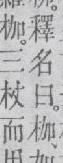 釋名曰。枷、加
枷。三杖而用